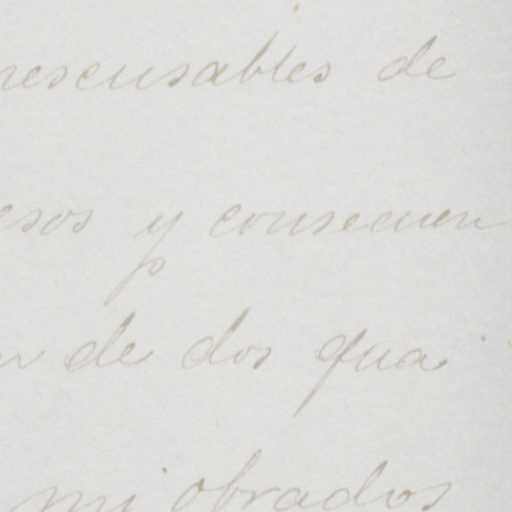 nescusables de
esos y consecuen
de dos qua
mi obrados